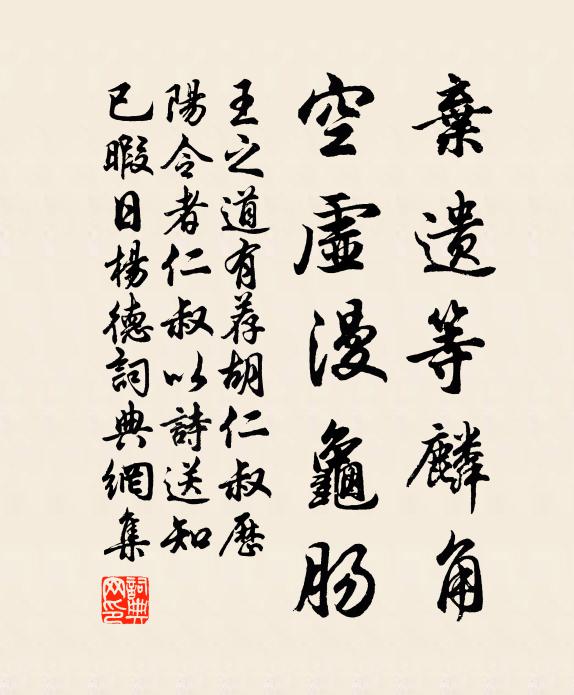 棄遺等麟角
空虛漫龜腸
王之道有荐胡仁叔歷
陽令者仁叔以詩送知
已暇日楊德詞典網集
詞典網印